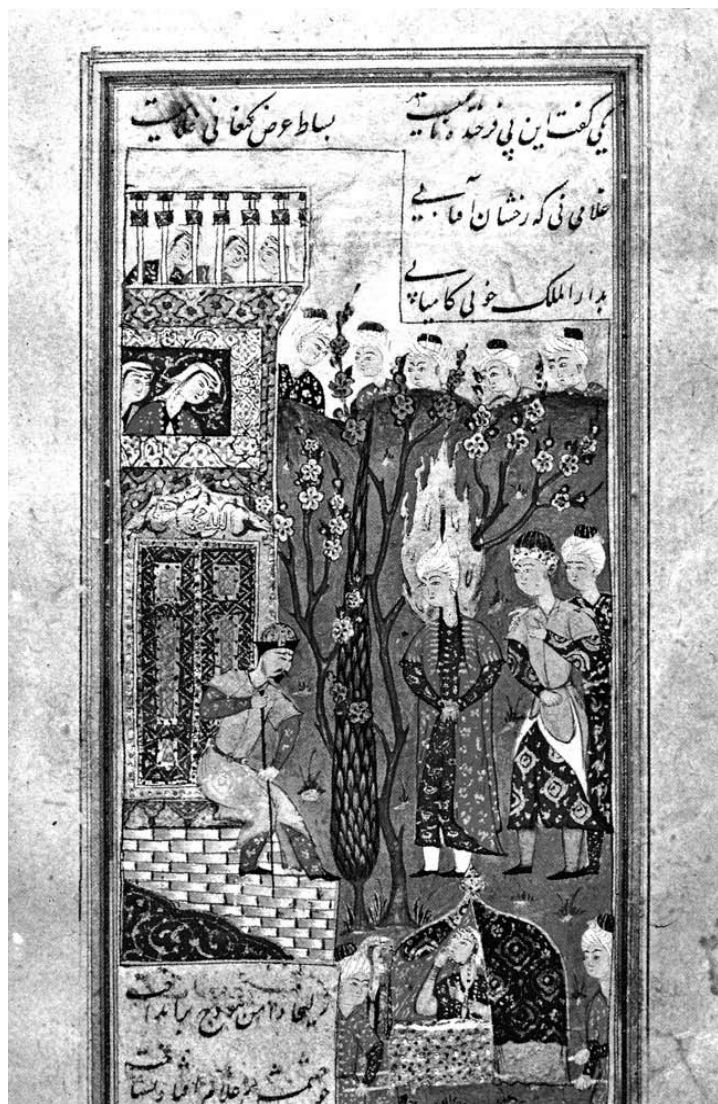 یکی گفت این پی فرخنده نامیست بساط عرض کنعانی غلامیست
غلامی نی که رخشان آفتابی
بدار الملک خوبی کامیابی
زلیخا دامن هودج برانداخت
چو چشمش بر غلام افتاد بشناخت